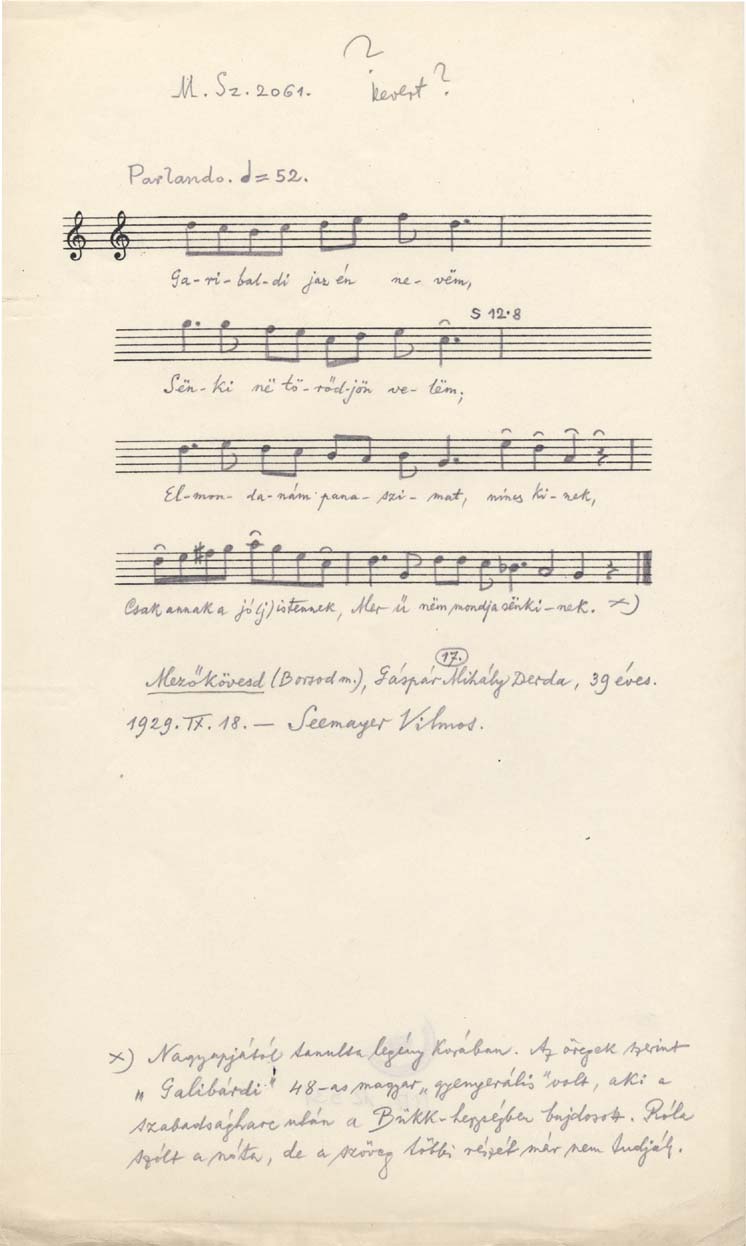 ?
M. Sz. 2061. kevert?
Parlando. 𝅗𝅥 = 52.
Ga-ri-bal-di jaz én ne-vëm,
S 12.8
Sën-ki në tö-rőd-jön ve-lëm;
El-mon-da-nám pana-szi-mat, nincs ki-nek,
Csak annak a jó(j) istennek, Mer ű nëm mondja sënki-nek. ×)
17.
Mezőkövesd (Borsod m.), Gáspár Mihály Derda, 39 éves.
1929. IX. 18. — Seemayer Vilmos.
×) Nagyapjától tanulta legény korában. Az öregek szerint
„Galibárdi" 48-as magyar „gyenyerális" volt, aki a
szabadságharc után a Bükk-hegységben bujdosott. Róla
szólt a nóta, de a szöveg többi részét már nem tudják.